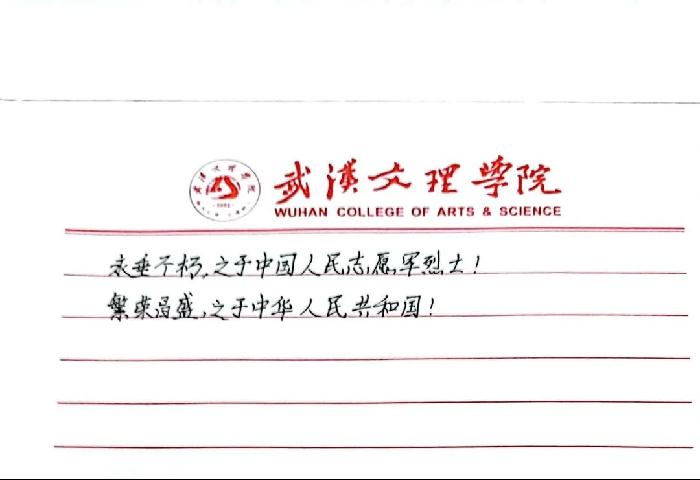 武汉文理学院
WUHAN COLLEGE OF ARTS & SCIENCE
永垂不朽,之于中国人民志愿军烈士!
繁荣昌盛,之于中华人民共和国!